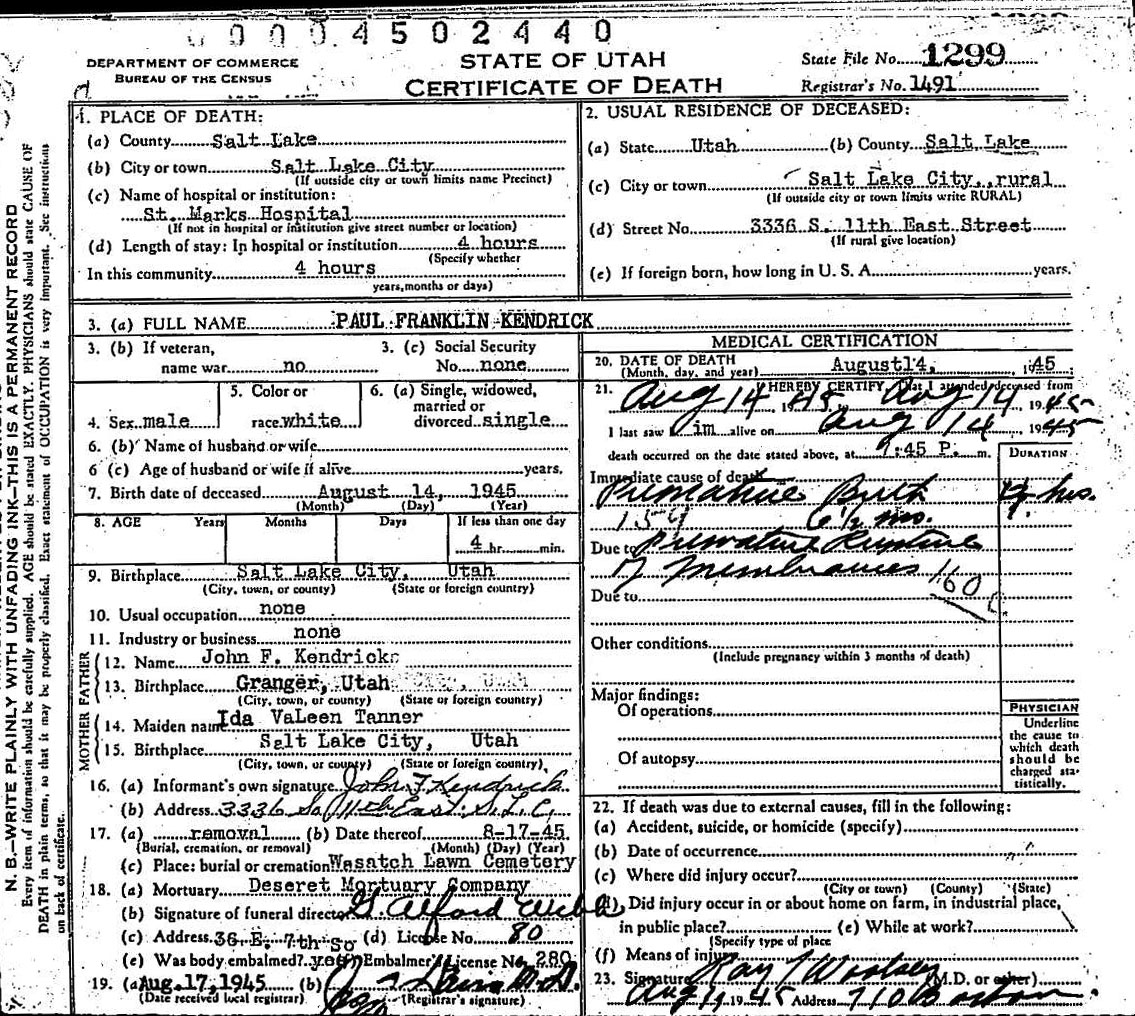 0 0 0 4 5 0 2 4 4 0
DEPARTMENT OF COMMERCE
BUREAU OF THE CENSUS
STATE OF UTAH
CERTIFICATE OF DEATH
State File No. 1299
Registrar's No. 1491
N. B.—WRITE PLAINLY WITH UNFADING INK—THIS IS A PERMANENT RECORD
Every item of information should be carefully supplied. AGE should be stated EXACTLY. PHYSICIANS should state CAUSE OF
DEATH in plain terms, so that it may be properly classified. Exact statement of OCCUPATION is very important. See instructions
on back of certificate.
1. PLACE OF DEATH:
(a) County Salt Lake
(b) City or town Salt Lake City
(If outside city or town limits name Precinct)
(c) Name of hospital or institution:
St. Marks Hospital
(If not in hospital or institution give street number or location)
(d) Length of stay: In hospital or institution 4 hours
(Specify whether
In this community 4 hours
years, months or days)
2. USUAL RESIDENCE OF DECEASED:
(a) State Utah (b) County Salt Lake
(c) City or town Salt Lake City, rural
(If outside city or town limits write RURAL)
(d) Street No. 3336 S. 11th East Street
(If rural give location)
(e) If foreign born, how long in U. S. A. years.
3. (a) FULL NAME PAUL FRANKLIN KENDRICK
3. (b) If veteran, 3. (c) Social Security
name war no No. none
4. Sex male 5. Color or race white 6. (a) Single, widowed, married or divorced single
6. (b) Name of husband or wife
6 (c) Age of husband or wife if alive years.
7. Birth date of deceased August 14, 1945
(Month) (Day) (Year)
8. AGE Years Months Days If less than one day
4 hr. min.
9. Birthplace Salt Lake City, Utah
(City, town, or county) (State or foreign country)
10. Usual occupation none
11. Industry or business none
FATHER
12. Name John F. Kendrick
13. Birthplace Granger, Utah
(City, town, or county) (State or foreign country)
MOTHER
14. Maiden name Ida VaLeen Tanner
15. Birthplace Salt Lake City, Utah
(City, town, or county) (State or foreign country)
16. (a) Informant's own signature John F Kendrick
(b) Address 3336 So 11th East S.L.C.
17. (a) removal (b) Date thereof 8-17-45
(Burial, cremation, or removal) (Month) (Day) (Year)
(c) Place: burial or cremation Wasatch Lawn Cemetery
18. (a) Mortuary Deseret Mortuary Company
(b) Signature of funeral director G. Alford Webb
(c) Address 36 E. 7th So (d) License No. 80
(e) Was body embalmed? yes Embalmer's License No. 280
19. (a) Aug. 17, 1945 (b) M.D.
(Date received local registrar) (Registrar's signature)
MEDICAL CERTIFICATION
20. DATE OF DEATH August 14, 1945
(Month, day, and year)
21. I HEREBY CERTIFY, that I attended deceased from
Aug 14 1945 Aug 14 1945
I last saw him alive on Aug 14 1945
death occurred on the date stated above, at :45 P. m.
DURATION
Immediate cause of death
Premature Birth 4 hrs.
159 6½ mo.
Due to Premature Rupture
of Membranes
Due to 160
Other conditions
(Include pregnancy within 3 months of death)
Major findings:
Of operations
Of autopsy
PHYSICIAN
Underline
the cause to
which death
should be
charged sta-
tistically.
22. If death was due to external causes, fill in the following:
(a) Accident, suicide, or homicide (specify)
(b) Date of occurrence
(c) Where did injury occur?
(City or town) (County) (State)
(d) Did injury occur in or about home on farm, in industrial place,
in public place? (e) While at work?
(Specify type of place
(f) Means of injury
23. Signature Ray T Woolsey (M.D. or other)
Aug 1945 Address 710 Boston